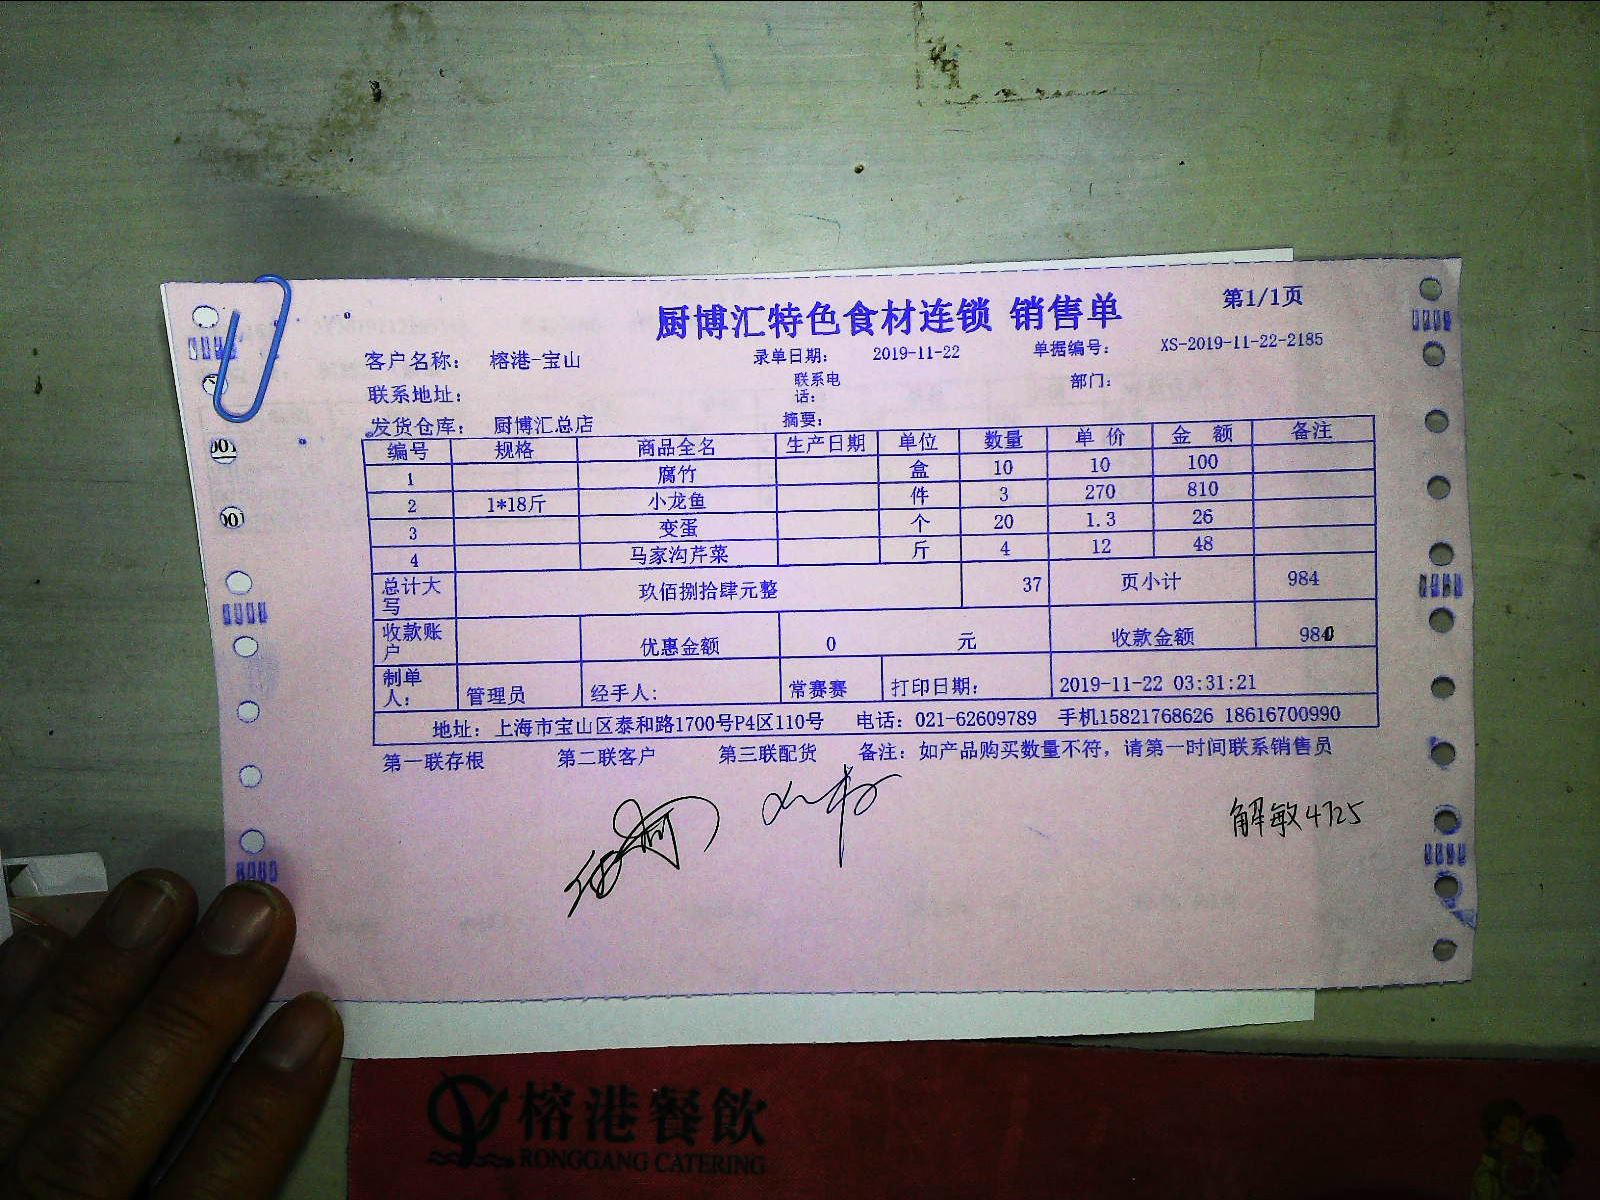 厨博汇特色食材连锁 销售单 第1/1页
客户名称： 榕港-宝山 录单日期： 2019-11-22 单据编号： XS-2019-11-22-2185
联系地址： 联系电话： 部门：
发货仓库： 厨博汇总店 摘要：
编号 规格 商品全名 生产日期 单位 数量 单价 金额 备注
1 腐竹 盒 10 10 100
2 1*18斤 小龙鱼 件 3 270 810
3 变蛋 个 20 1.3 26
4 马家沟芹菜 斤 4 12 48
总计大写 玖佰捌拾肆元整 37 页小计 984
收款账户 优惠金额 0 元 收款金额 980
制单人： 管理员 经手人： 常赛赛 打印日期： 2019-11-22 03:31:21
地址：上海市宝山区泰和路1700号P4区110号 电话：021-62609789 手机15821768626 18616700990
第一联存根 第二联客户 第三联配货 备注：如产品购买数量不符，请第一时间联系销售员
解敏4725
榕港餐飲
RONGGANG CATERING